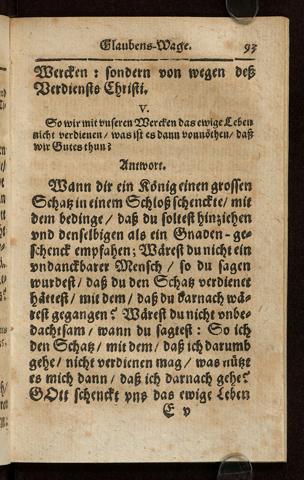 Glaubens-Wage. 93
Wercken: sondern von wegen deß
Verdiensts Christi.
V.
So wir mit vnseren Wercken das ewige Leben
nicht verdienen / was ist es dann vonnöthen / daß
wir Gutes thun?
Antwort.
Wann dir ein König einen grossen
Schatz in einem Schloß schenckte / mit
dem bedinge / daß du soltest hinziehen
vnd denselbigen als ein Gnaden-ge-
schenck empfahen; Wärest du nicht ein
vndanckbarer Mensch / so du sagen
wurdest / daß du den Schatz verdienet
hättest / mit dem / daß du darnach wä-
rest gegangen? Wärest du nicht vnbe-
dachtsam / wann du sagtest: So ich
den Schatz / mit dem / daß ich darumb
gehe / nicht verdienen mag / was nützt
es mich dann / daß ich darnach gehe?
GOtt schenckt vns das ewige Leben
E v